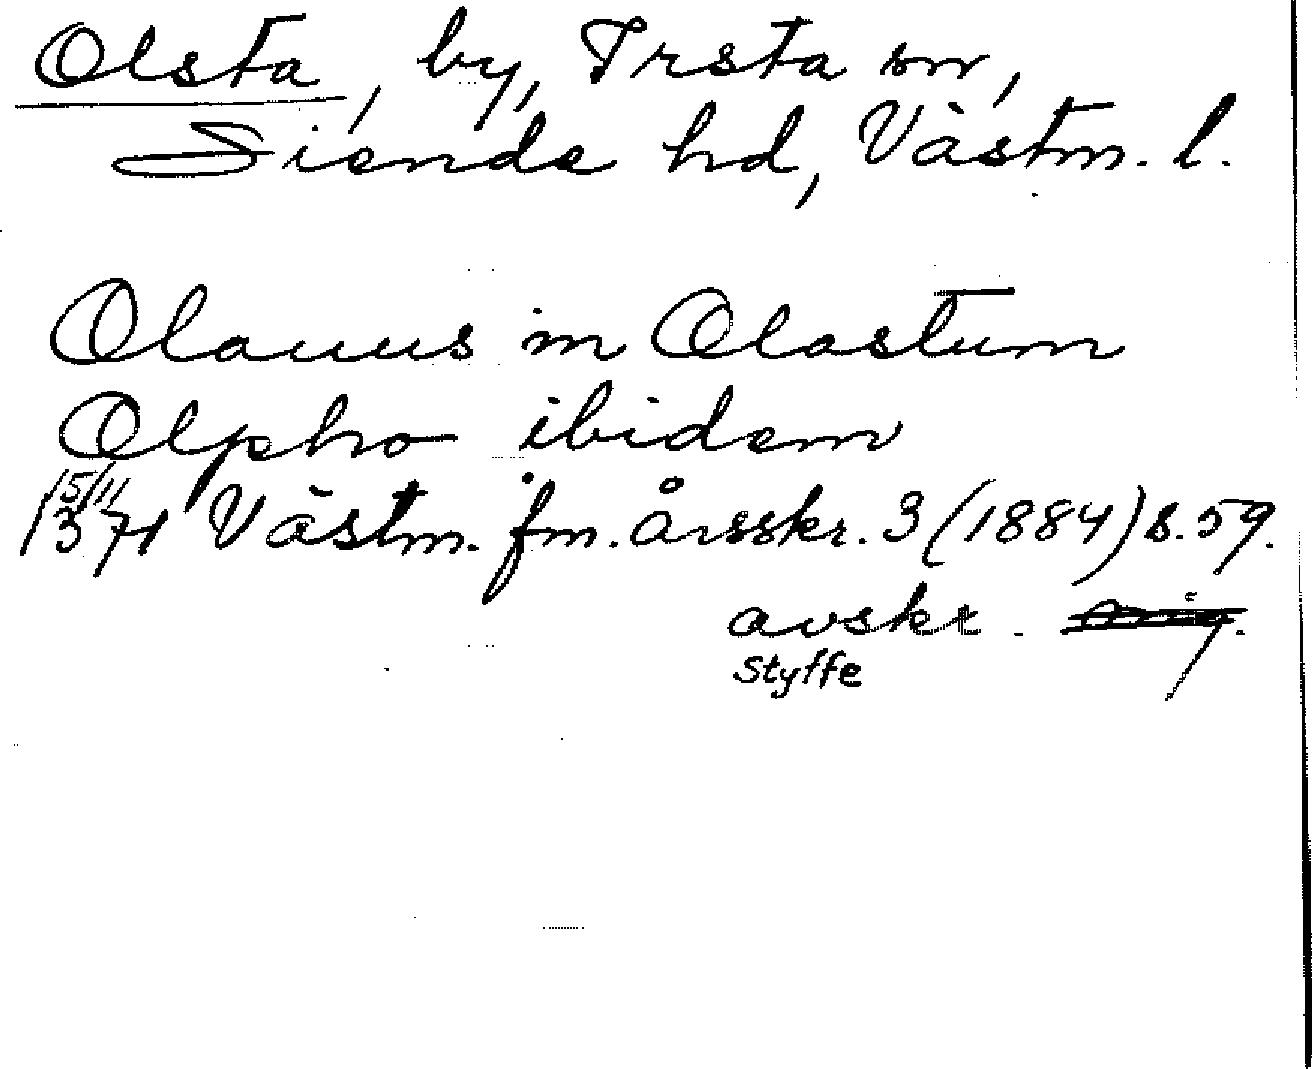 Olsta, by, Irsta sn,
Siende hd, Västm. l.
Olauus in Olastum
Olpho ibidem
15/11
1371 Västm. fm. årsskr. 3 (1884) s. 59.
avskr.
Styffe